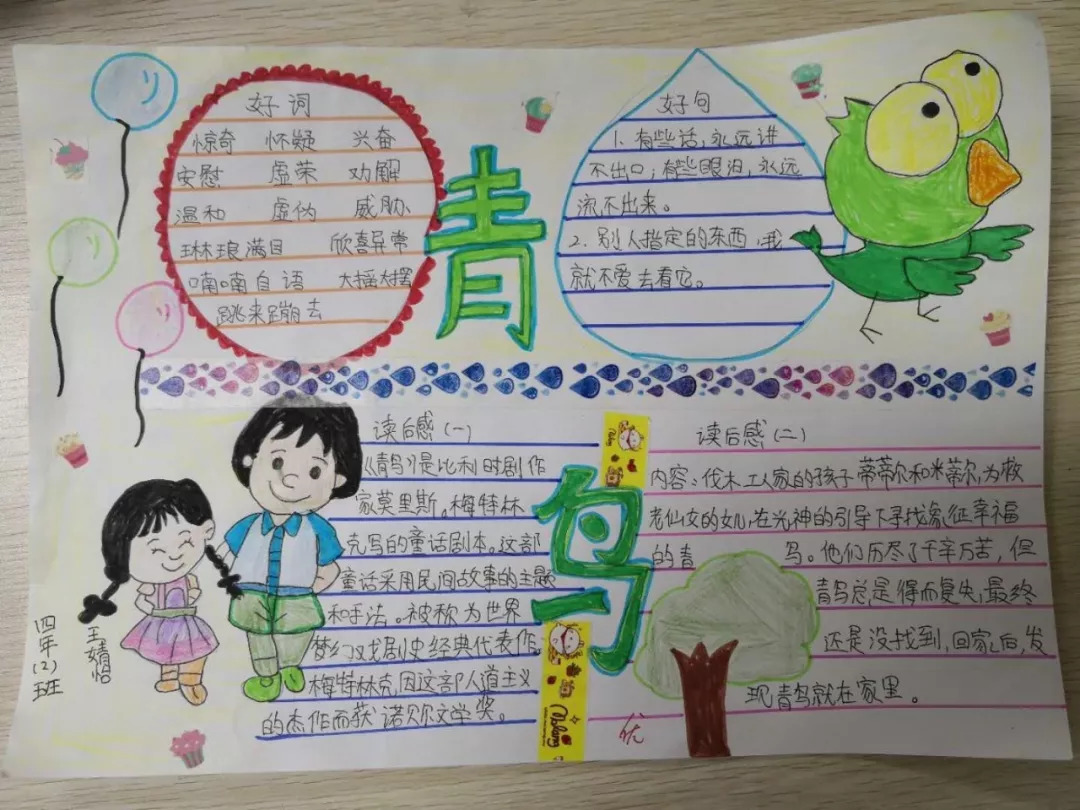 好词
惊奇 怀疑 兴奋
安慰 虚荣 劝解
温和 虚伪 威胁
琳琅满目 欣喜异常
喃喃自语 大摇大摆
跳来蹦去
青
好句
1. 有些话,永远讲
不出口;有些眼泪,永远
流不出来。
2. 别人指定的东西,我
就不爱去看它。
读后感(一)
《青鸟》是比利时剧作
家莫里斯。梅特林
克写的童话剧本。这部
童话采用民间故事的主题
和手法。被称为世界
梦幻戏剧史经典代表作。
梅特林克因这部人道主义
的杰作而获诺贝尔文学奖。
鸟
读后感(二)
内容:伐木工人家的孩子蒂蒂尔和米蒂尔,为救
老仙女的女儿,在光神的引导下寻找象征幸福
的青 鸟。他们历尽了千辛万苦,但
青鸟总是得而复失,最终
还是没找到,回家后,发
现青鸟就在家里。
优
四年(2)班
王婧怡